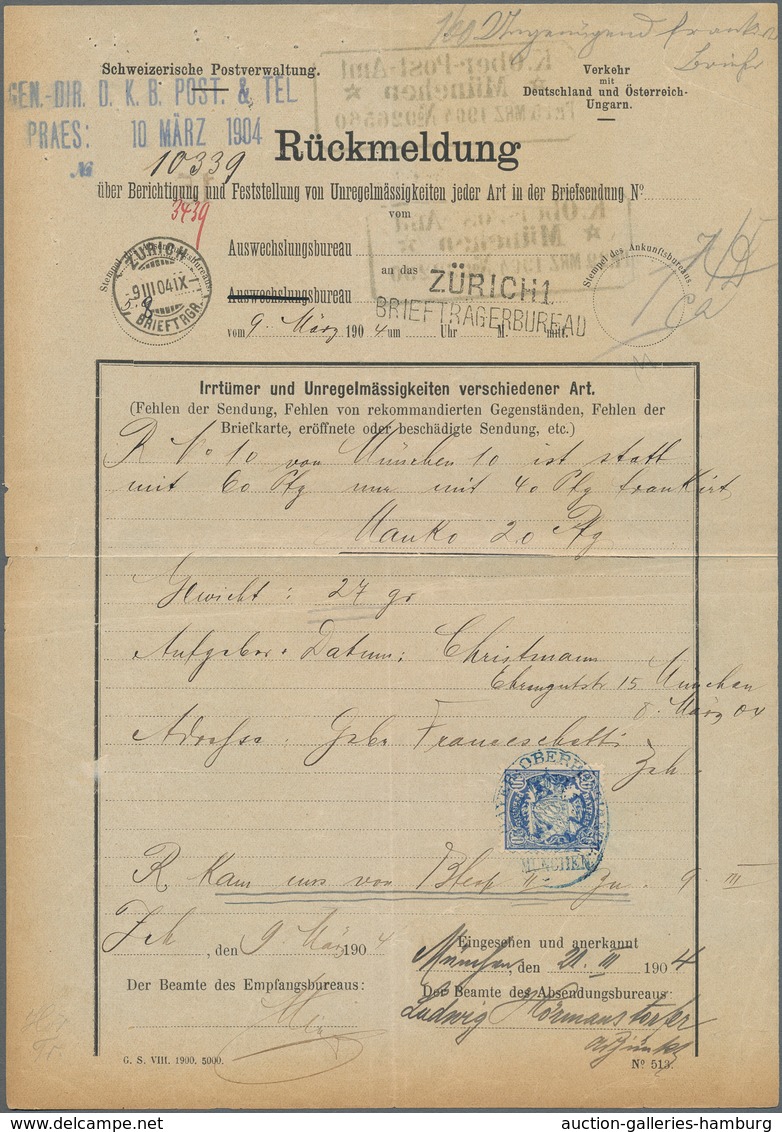 160 Ungenügend frankr
Briefe
Schweizerische Postverwaltung.
Verkehr
mit
Deutschland und Österreich-
Ungarn.
GEN.-DIR. D. K. B. POST. & TEL
PRAES: 10 MÄRZ 1904
No 10339
K. Ober-Post-Amt
München
Rückmeldung
über Berichtigung und Feststellung von Unregelmässigkeiten jeder Art in der Briefsendung No
3439
vom
Auswechslungsbureau
an das
Auswechslungsbureau
ZÜRICH 1.
BRIEFTRÄGERBUREAU
vom 9. März 1904 um Uhr M. mitt.
Stempel des Auswechslungsbureaus.
ZÜRICH
9 III 04 IX-
BRIEFTRGR.
Stempel des Ankunftsbureaus.
Irrtümer und Unregelmässigkeiten verschiedener Art.
(Fehlen der Sendung, Fehlen von rekommandierten Gegenständen, Fehlen der
Briefkarte, eröffnete oder beschädigte Sendung, etc.)
R No 10 von München 10 ist statt
mit 60 Pfg nur mit 40 Pfg frankirt,
Manko 20 Pfg
Gewicht : 27 gr
Aufgeber & Datum: Christmann
Ehrengutstr 15 München
8. März 04
Adresse : Gebr Franceschetti
Zch.
BAYER. OBERP
MÜNCHEN
R kam uns von Zu. 9 III
Zch, den 9. März 1904
Eingesehen und anerkannt
München, den 21. III 1904
Der Beamte des Empfangsbureaus:
Der Beamte des Absendungsbureaus:
Ludwig Hörmanstorfer
Adjunkt
G. S. VIII. 1900. 5000.
No 513.
auction-galleries-hamburg